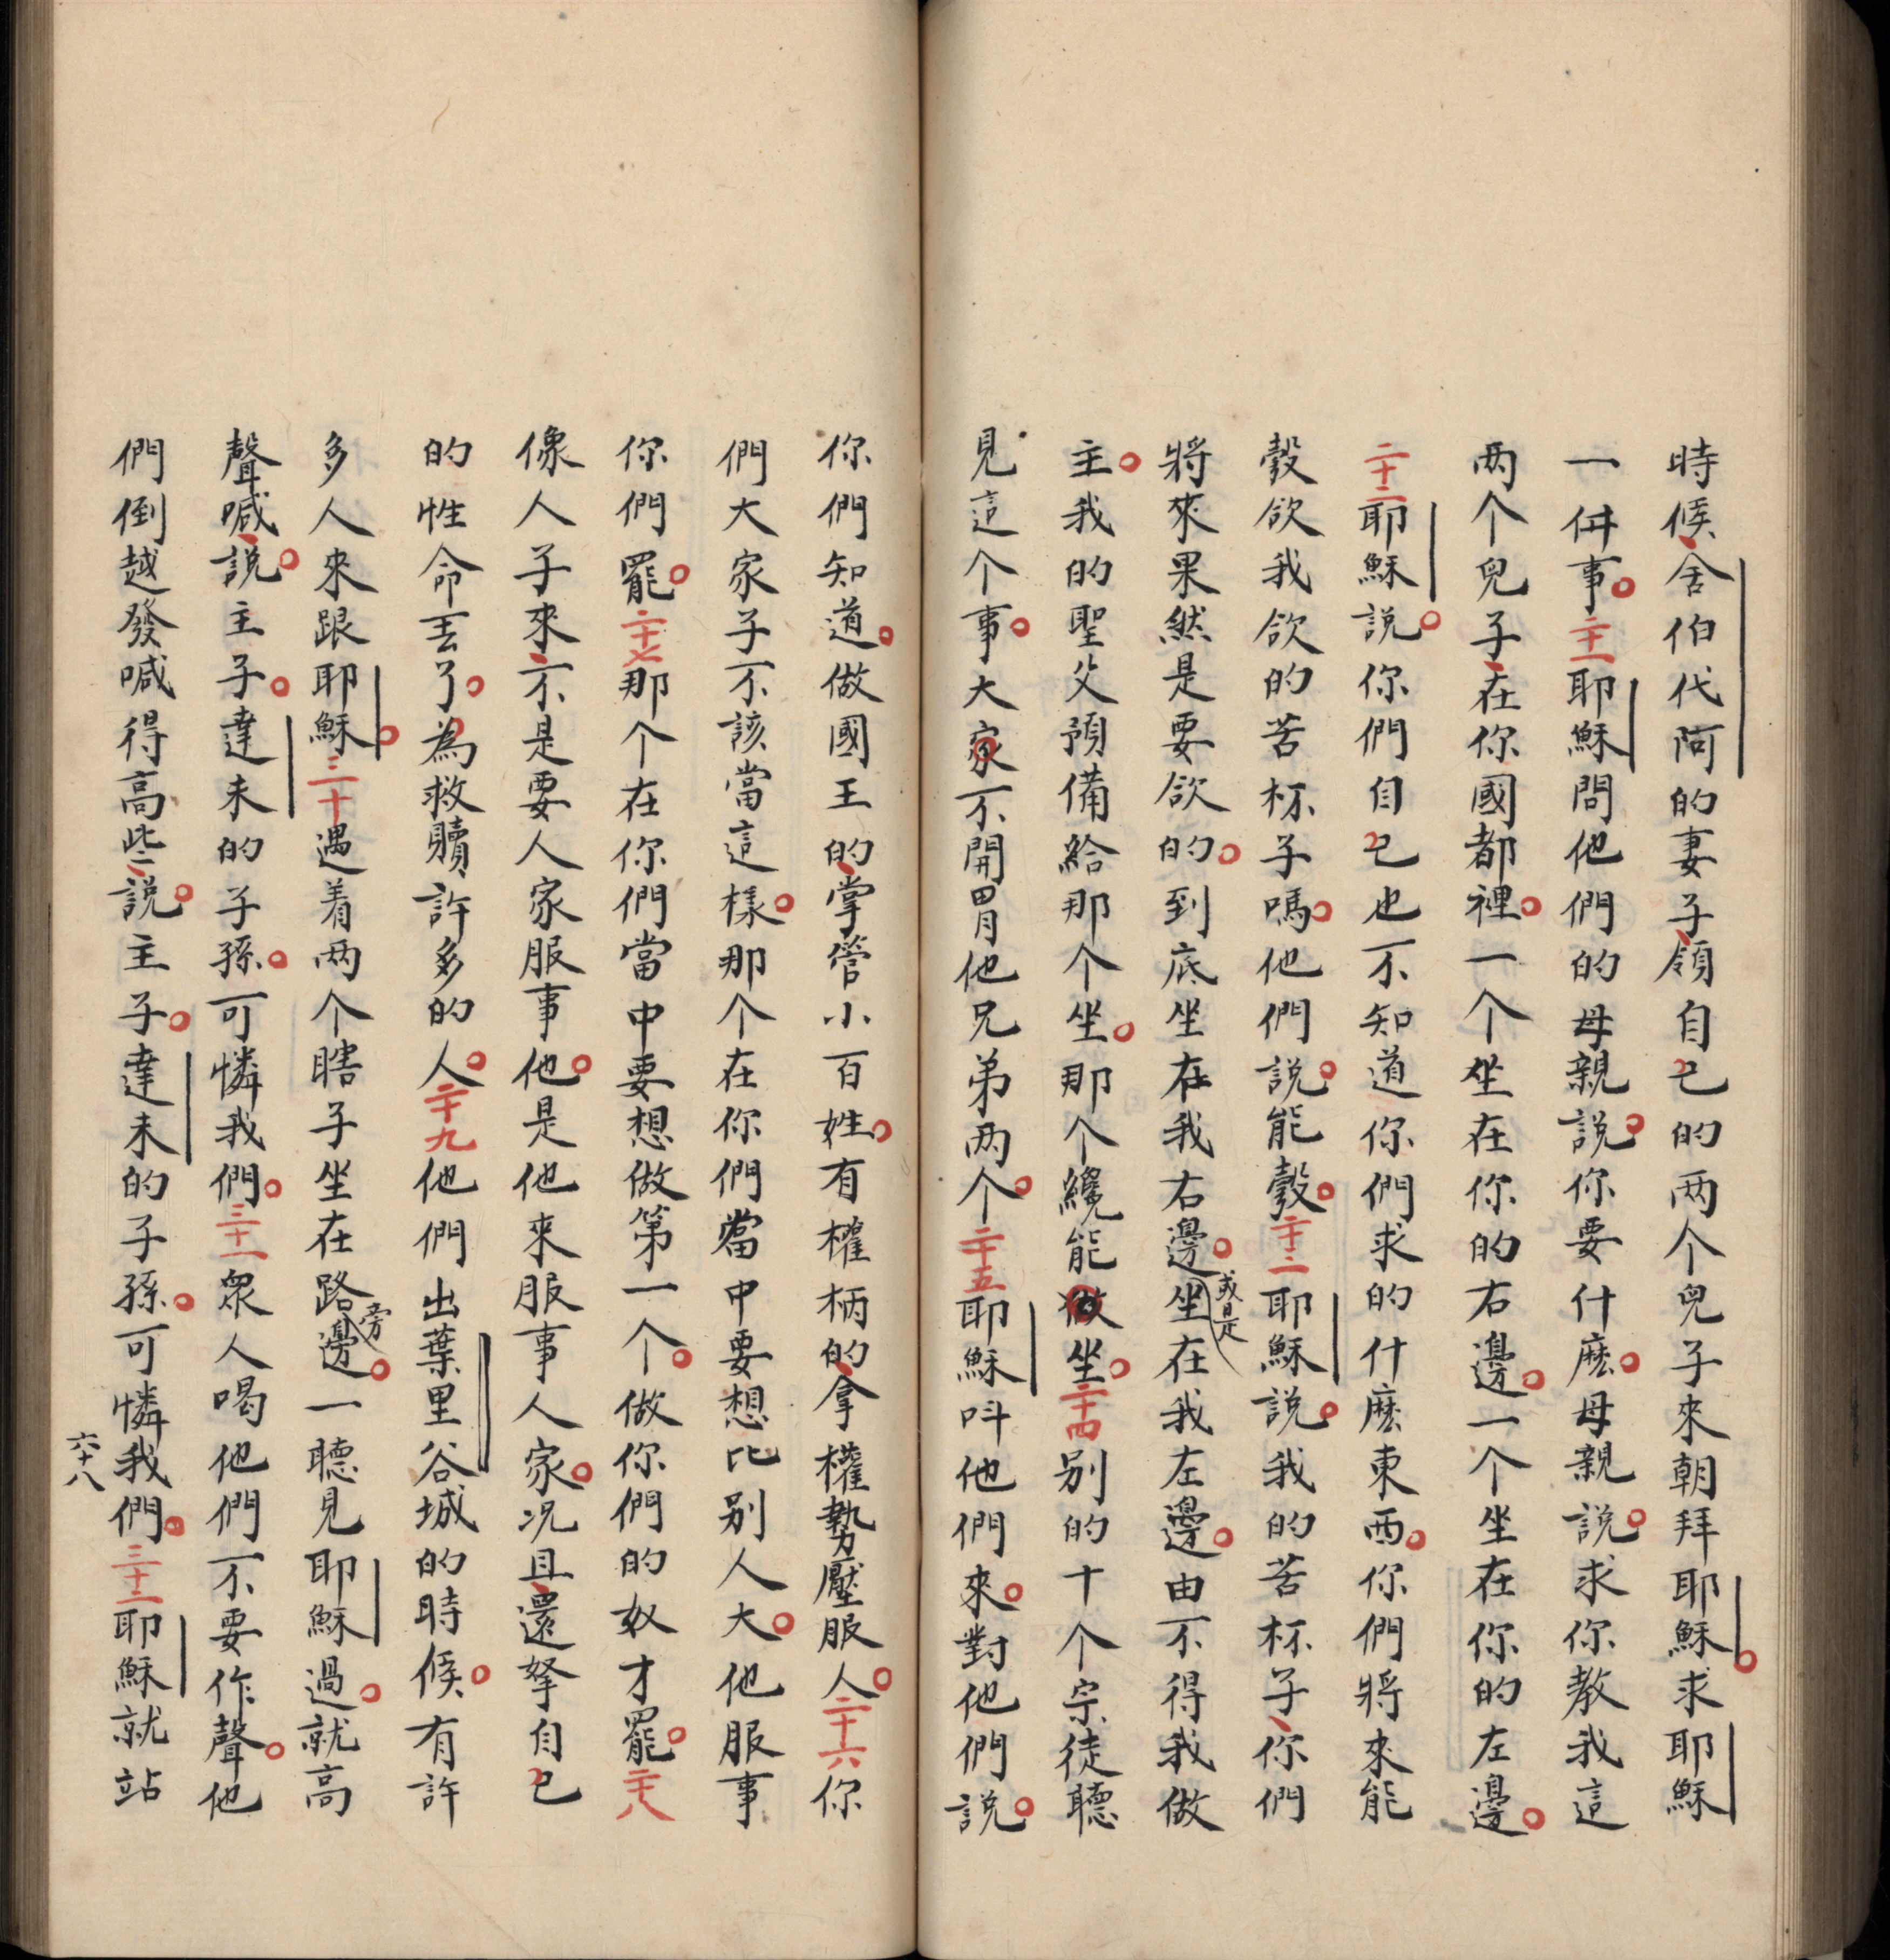 時候、舍伯代阿的妻子、領自己的兩个兒子來朝拜耶穌。求耶穌
一件事。二十一耶穌問他們的母親説。你要什麽。母親説。求你教我這
兩个兒子、在你國都裡。一个坐在你的右邊。一个坐在你的左邊。
二十二耶穌説。你們自己也不知道你們求的什麽東西。你們將來能
彀飲我飲的苦杯子嗎。他們説。能彀。二十三耶穌説。我的苦杯子、你們
將來果然是要飲的。到底坐在我右邊。或是坐在我左邊。由不得我做
主。我的聖父預備給那个坐。那个纔能坐。二十四别的十个宗徒聽
見這个事。大家不開胃他兄弟兩个。二十五耶穌呌他們來。對他們説。
你們知道。做國王的、掌管小百姓。有權柄的、拿權勢壓服人。二十六你
們大家子不該當這樣。那个在你們當中要想比别人大。他服事
你們罷。二十七那个在你們當中要想做第一个。做你們的奴才罷。二十八
像人子來、不是要人家服事他。是他來服事人家。况且、還拏自己
的性命丟了。為救贖許多的人。二十九他們出葉里谷城的時候。有許
多人來跟耶穌。三十遇着兩个瞎子坐在路旁邊。一聽見耶穌過。就高
聲喊、説。主子。達未的子孫。可憐我們。三十一衆人喝他們不要作聲。他
們倒越發喊得高些、説。主子。達未的子孫。可憐我們。三十二耶穌就站
六十八